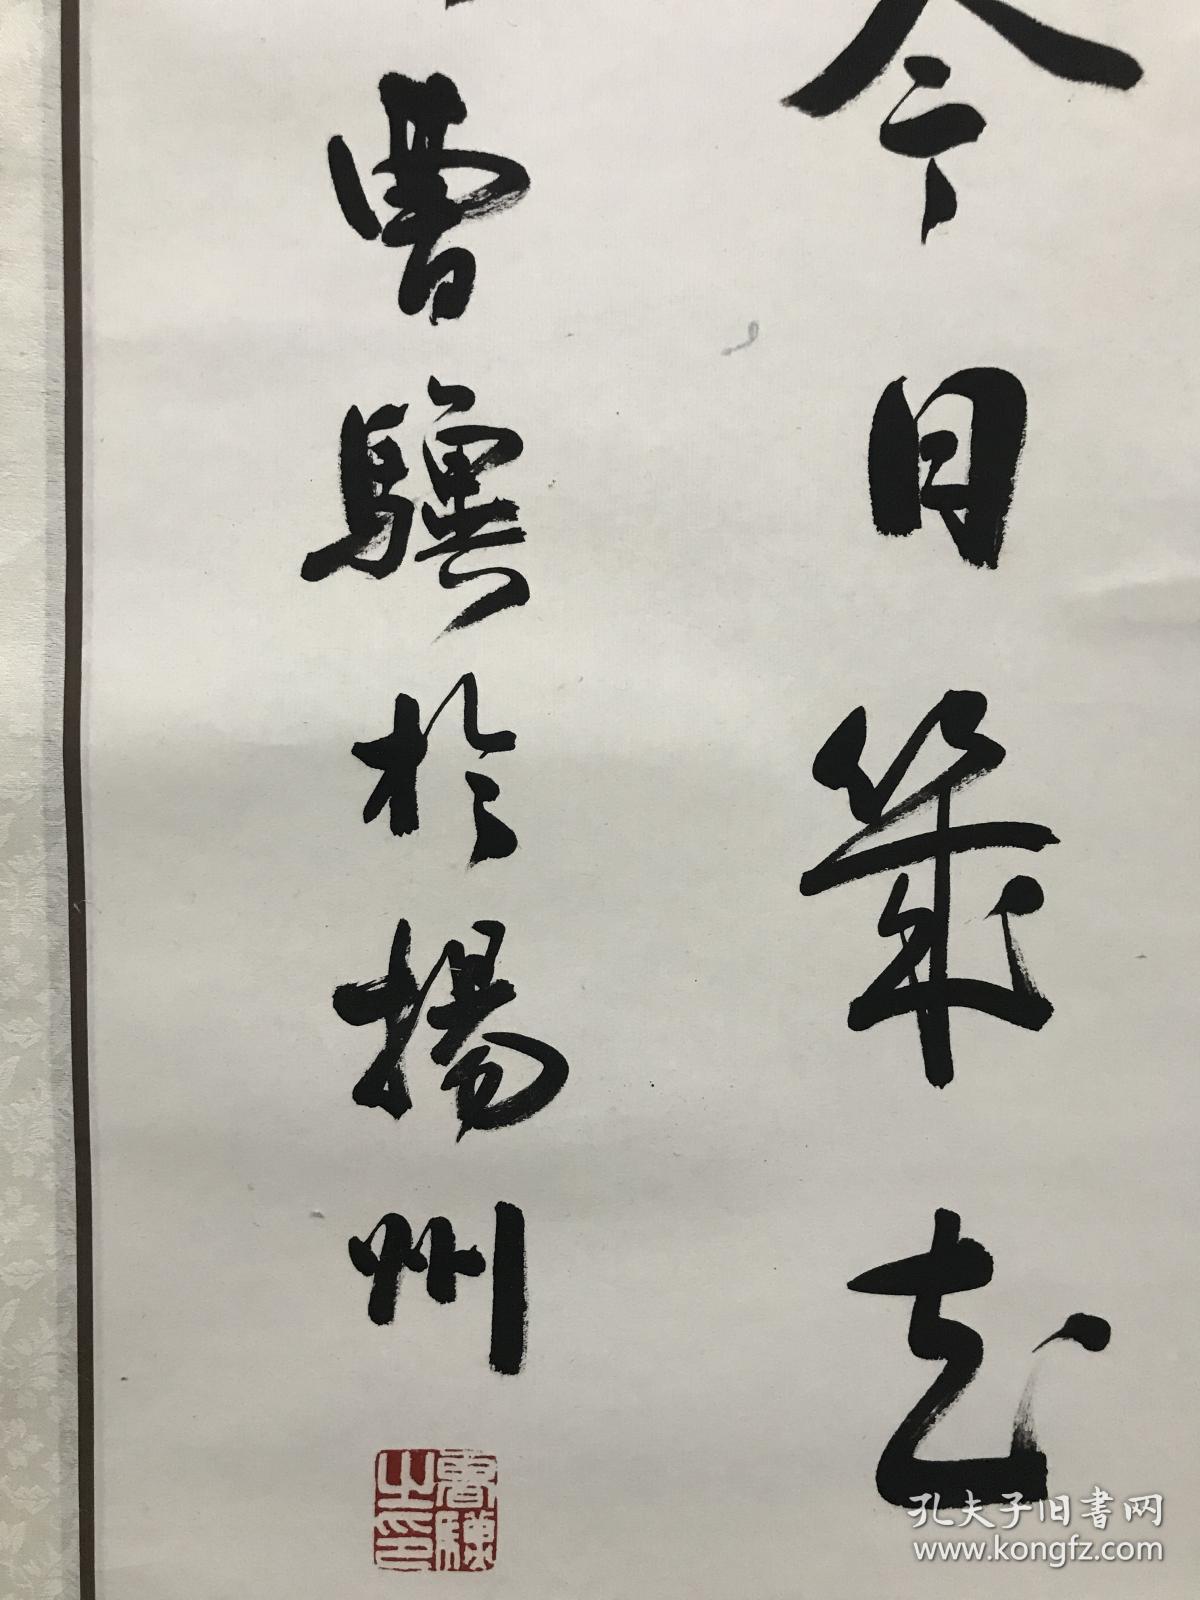 今日策
曹驥於揚州
曹驥之印
孔夫子旧書网
www.kongfz.com